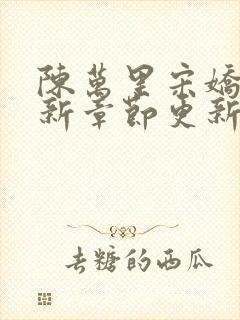 陳萬里宋嬌
新章節更新
去糖的西瓜